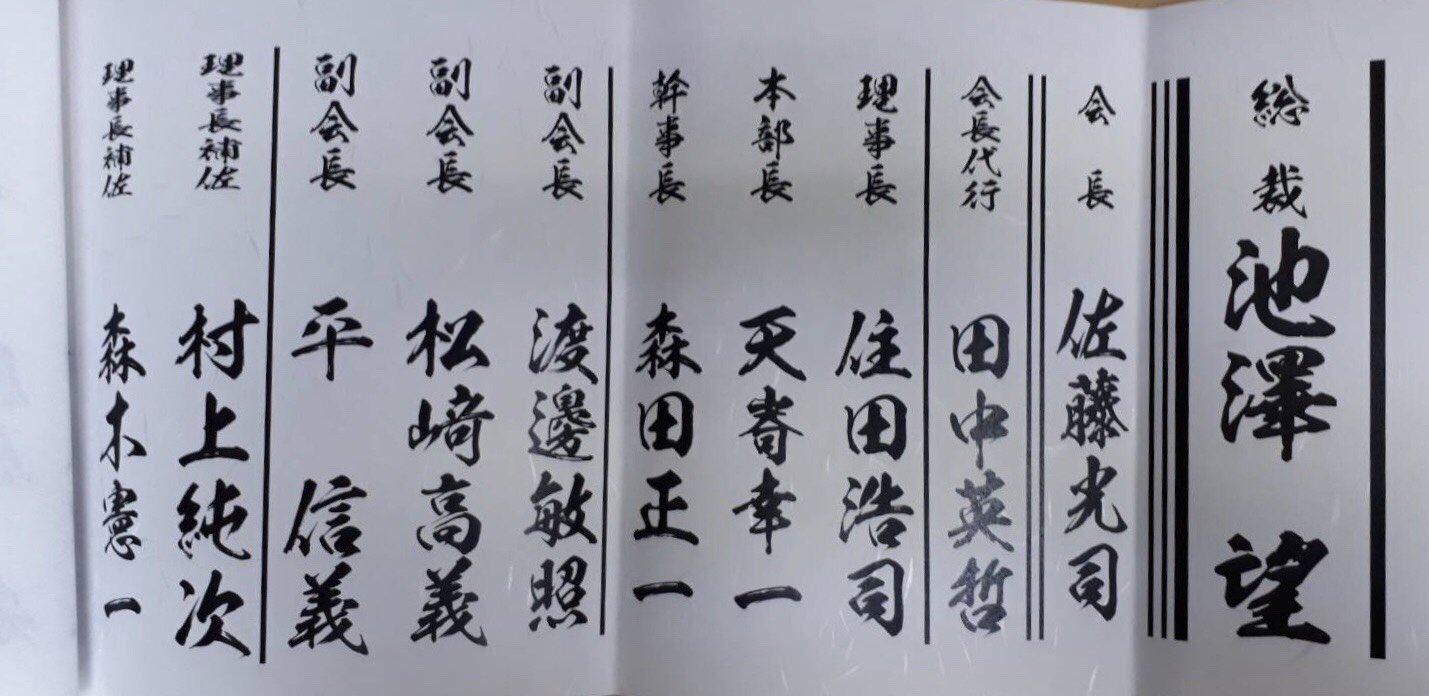 総裁 池澤 望
会長 佐藤光司
会長代行 田中英哲
理事長 住田浩司
本部長 天嵜幸一
幹事長 森田正一
副会長 渡邊敏照
副会長 松﨑高義
副会長 平 信義
理事長補佐 村上純次
理事長補佐 森木憲一